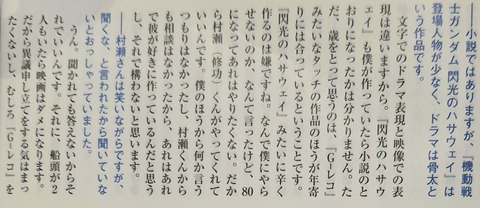 ――小説ではありますが、『機動戦
士ガンダム 閃光のハサウェイ』は
登場人物が少なく、ドラマは骨太と
いう作品です。
　文字でのドラマ表現と映像での表
現は違いますから。『閃光のハサウ
ェイ』も僕が作っていたら小説のと
おりになったかは分かりません。た
だ、歳をとって思うのは、『G-レコ』
みたいなタッチの作品のほうが年寄
りには合っているということです。
『閃光のハサウェイ』みたいに辛く
作るのは嫌ですね。なんで僕にやら
せないのか、なんて言ったけど、80
になってあれはやりたくない。だか
ら村瀬（修功）くんがやってくれて
いいんです。僕のほうから何か言う
つもりはなかったし、村瀬くんから
も相談はなかったから、あれはあれ
で彼が好きに作っているんだと思う
し、それで構わないと思います。
――村瀬さんは笑いながらですが、
聞くな、と言われたから聞いていな
いとおっしゃっていました。
　うん。聞かれても答えないからそ
れでいいんです。それに、船頭が2
人もいたら映画はダメになります。
だから異議申し立てをする気はまっ
たくないし、むしろ『G-レコ』を